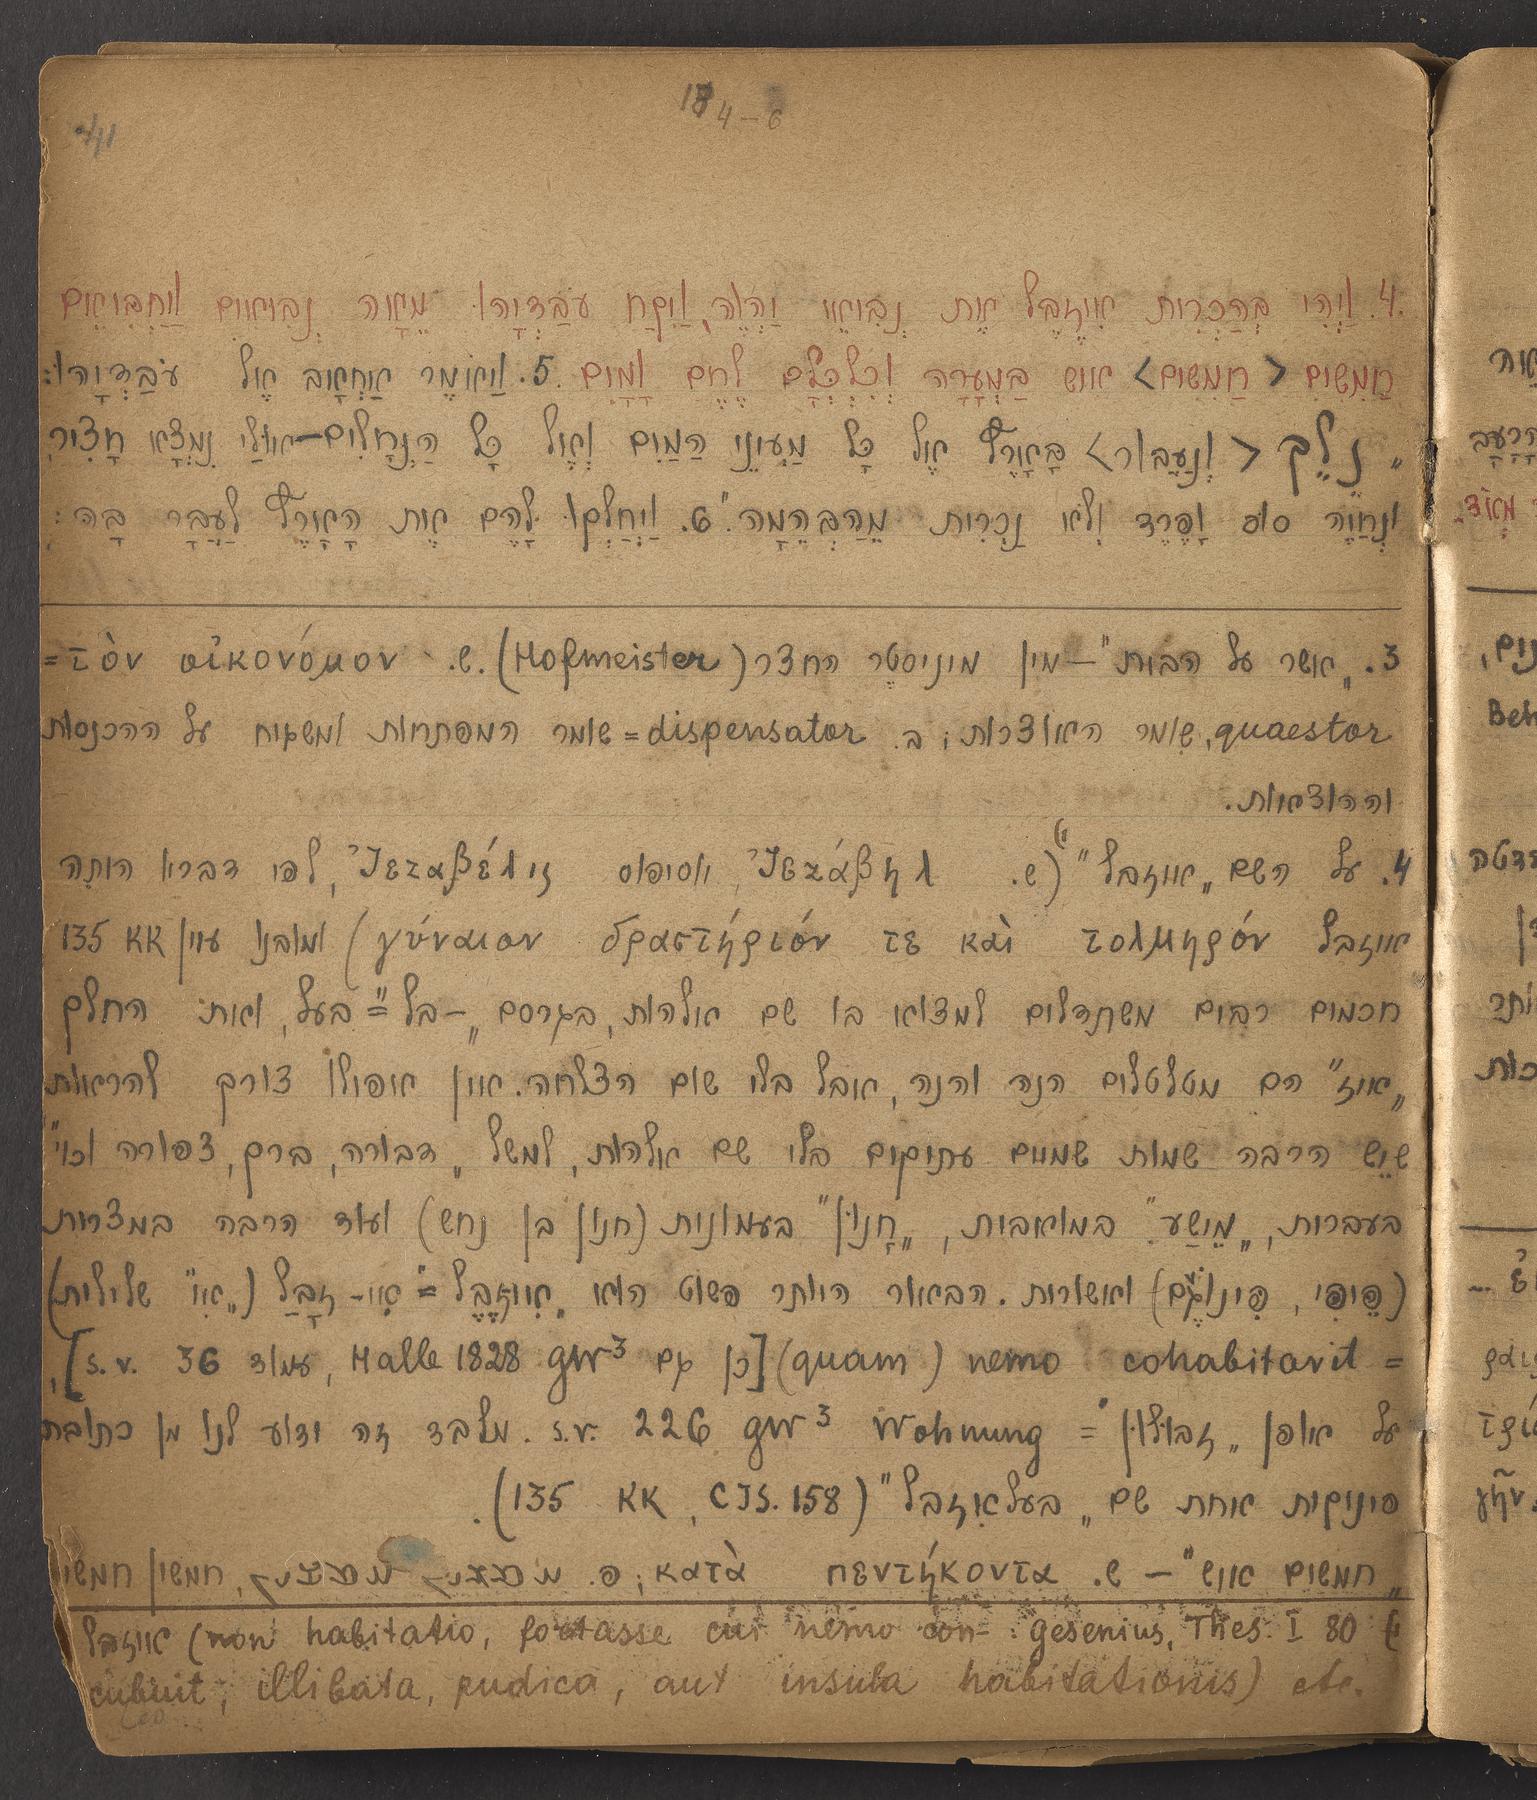 18 4–6
4. וַיְהִי בְּהַכְרִית אִיזֶבֶל אֵת נְבִיאֵי יַהְוֶה, וַיִּקַּח עֹבַדְיָהוּ מֵאָה נְבִיאִים וַיַּחְבִּיאֵם
חֲמִשִּׁים <חֲמִשִּׁים> אִישׁ בַּמְּעָרָה וְכִלְכְּלָם לֶחֶם וָמָיִם. 5. וַיֹּאמֶר אַחְאָב אֶל עֹבַדְיָהוּ:
„נֵלֵךְ <וְנַעֲבֹור> בָּאָרֶץ אֶל כָּל מַעְיְנֵי הַמַּיִם וְאֶל כָּל הַנְּחָלִים–אוּלַי נִמְצָא חָצִיר
וּנְחַיֶּה סוּס וָפֶרֶד וְלֹא נַכְרִית מֵהַבְּהֵמָה." 6. וַיְחַלְּקוּ לָהֶם אֶת הָאָרֶץ לַעֲבָר בָּהּ:
3. „אשר על הבית" – מין מיניסטר החצר (Hofmeister). ש. τὸν οἰκονόμον =
quaestor, שומר האוצרות; ב. dispensator = שומר המפתחות ומשגיח על ההכנסות
וההוצאות.
4. על השם „איזבל" (ש. Ἰεζάβηλ, יוסיפוס Ἰεζαβέλη זי, לפי דבריו היתה
איזבל γύναιον δραστήριόν τε καὶ τολμηρόν) ומובנו עיין KK 135
חכמים רבים משתדלים למצוא בו שם אלהות, בגרסם „–בל" = בעל, ואת החלק
„איז" הם מטלטלים הנה והנה, אבל בלי שום הצלחה. אין אפילו צורך להראות
שיש הרבה שמות שמיים עתיקים בלי שם אלהות, למשל „דבורה, ברק, צפורה וכו'"
בעברית, „מֵישַׁע" במואבית, „חָנוּן" בעמונית (חנון בן נחש) ועוד הרבה במצרית
(פֵּיפִּי, פִּינוֹגֶם) ואשורית. הבאור היותר פשוט הוא „אִיזֶבֶל" = אִי-זָבַל („אִי" שלילית)
= (quam) nemo cohabitavit [כן גם GW³ Halle 1828, עמוד 36 s.v.],
על אופן „זבולון" = Wohnung GW³ 226 s.v. מלבד זה ידוע לנו מן כתובת
פיניקית אחת שם „בעלאִזבל" (CIS. 158, KK 135).
„חמשים איש" – ש. κατὰ πεντήκοντα; פ. ܚܡܫܝܢ ܚܡܫܝܢ, חמשין חמשין
איזבל (non habitatio, fortasse cui nemo con- : Gesenius, Thes. I 80
cubuit, illibata, pudica, aut insula habitationis) etc.